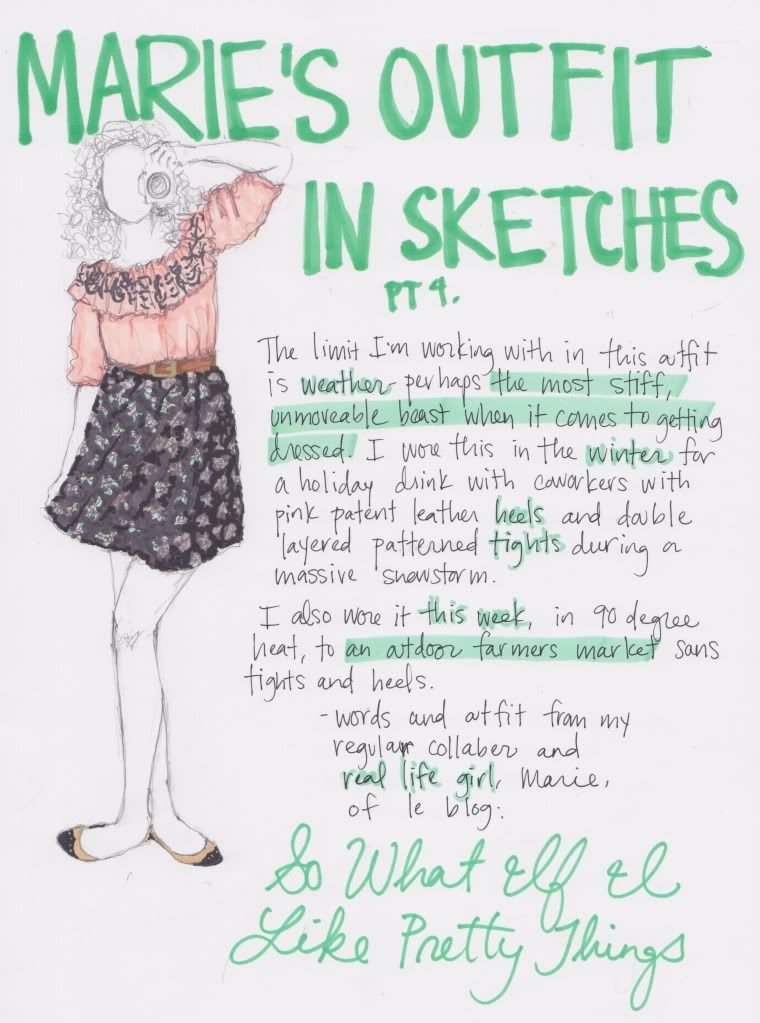 MARIE'S OUTFIT
IN SKETCHES
PT 4.
The limit I'm working with in this outfit
is weather- perhaps the most stiff,
unmoveable beast when it comes to getting
dressed. I wore this in the winter for
a holiday drink with coworkers with
pink patent leather heels and double
layered patterned tights during a
massive snowstorm.
I also wore it this week, in 90 degree
heat, to an outdoor farmers market sans
tights and heels.
- words and outfit from my
regular collaber and
real life girl, Marie,
of le blog:
So What If I
Like Pretty Things